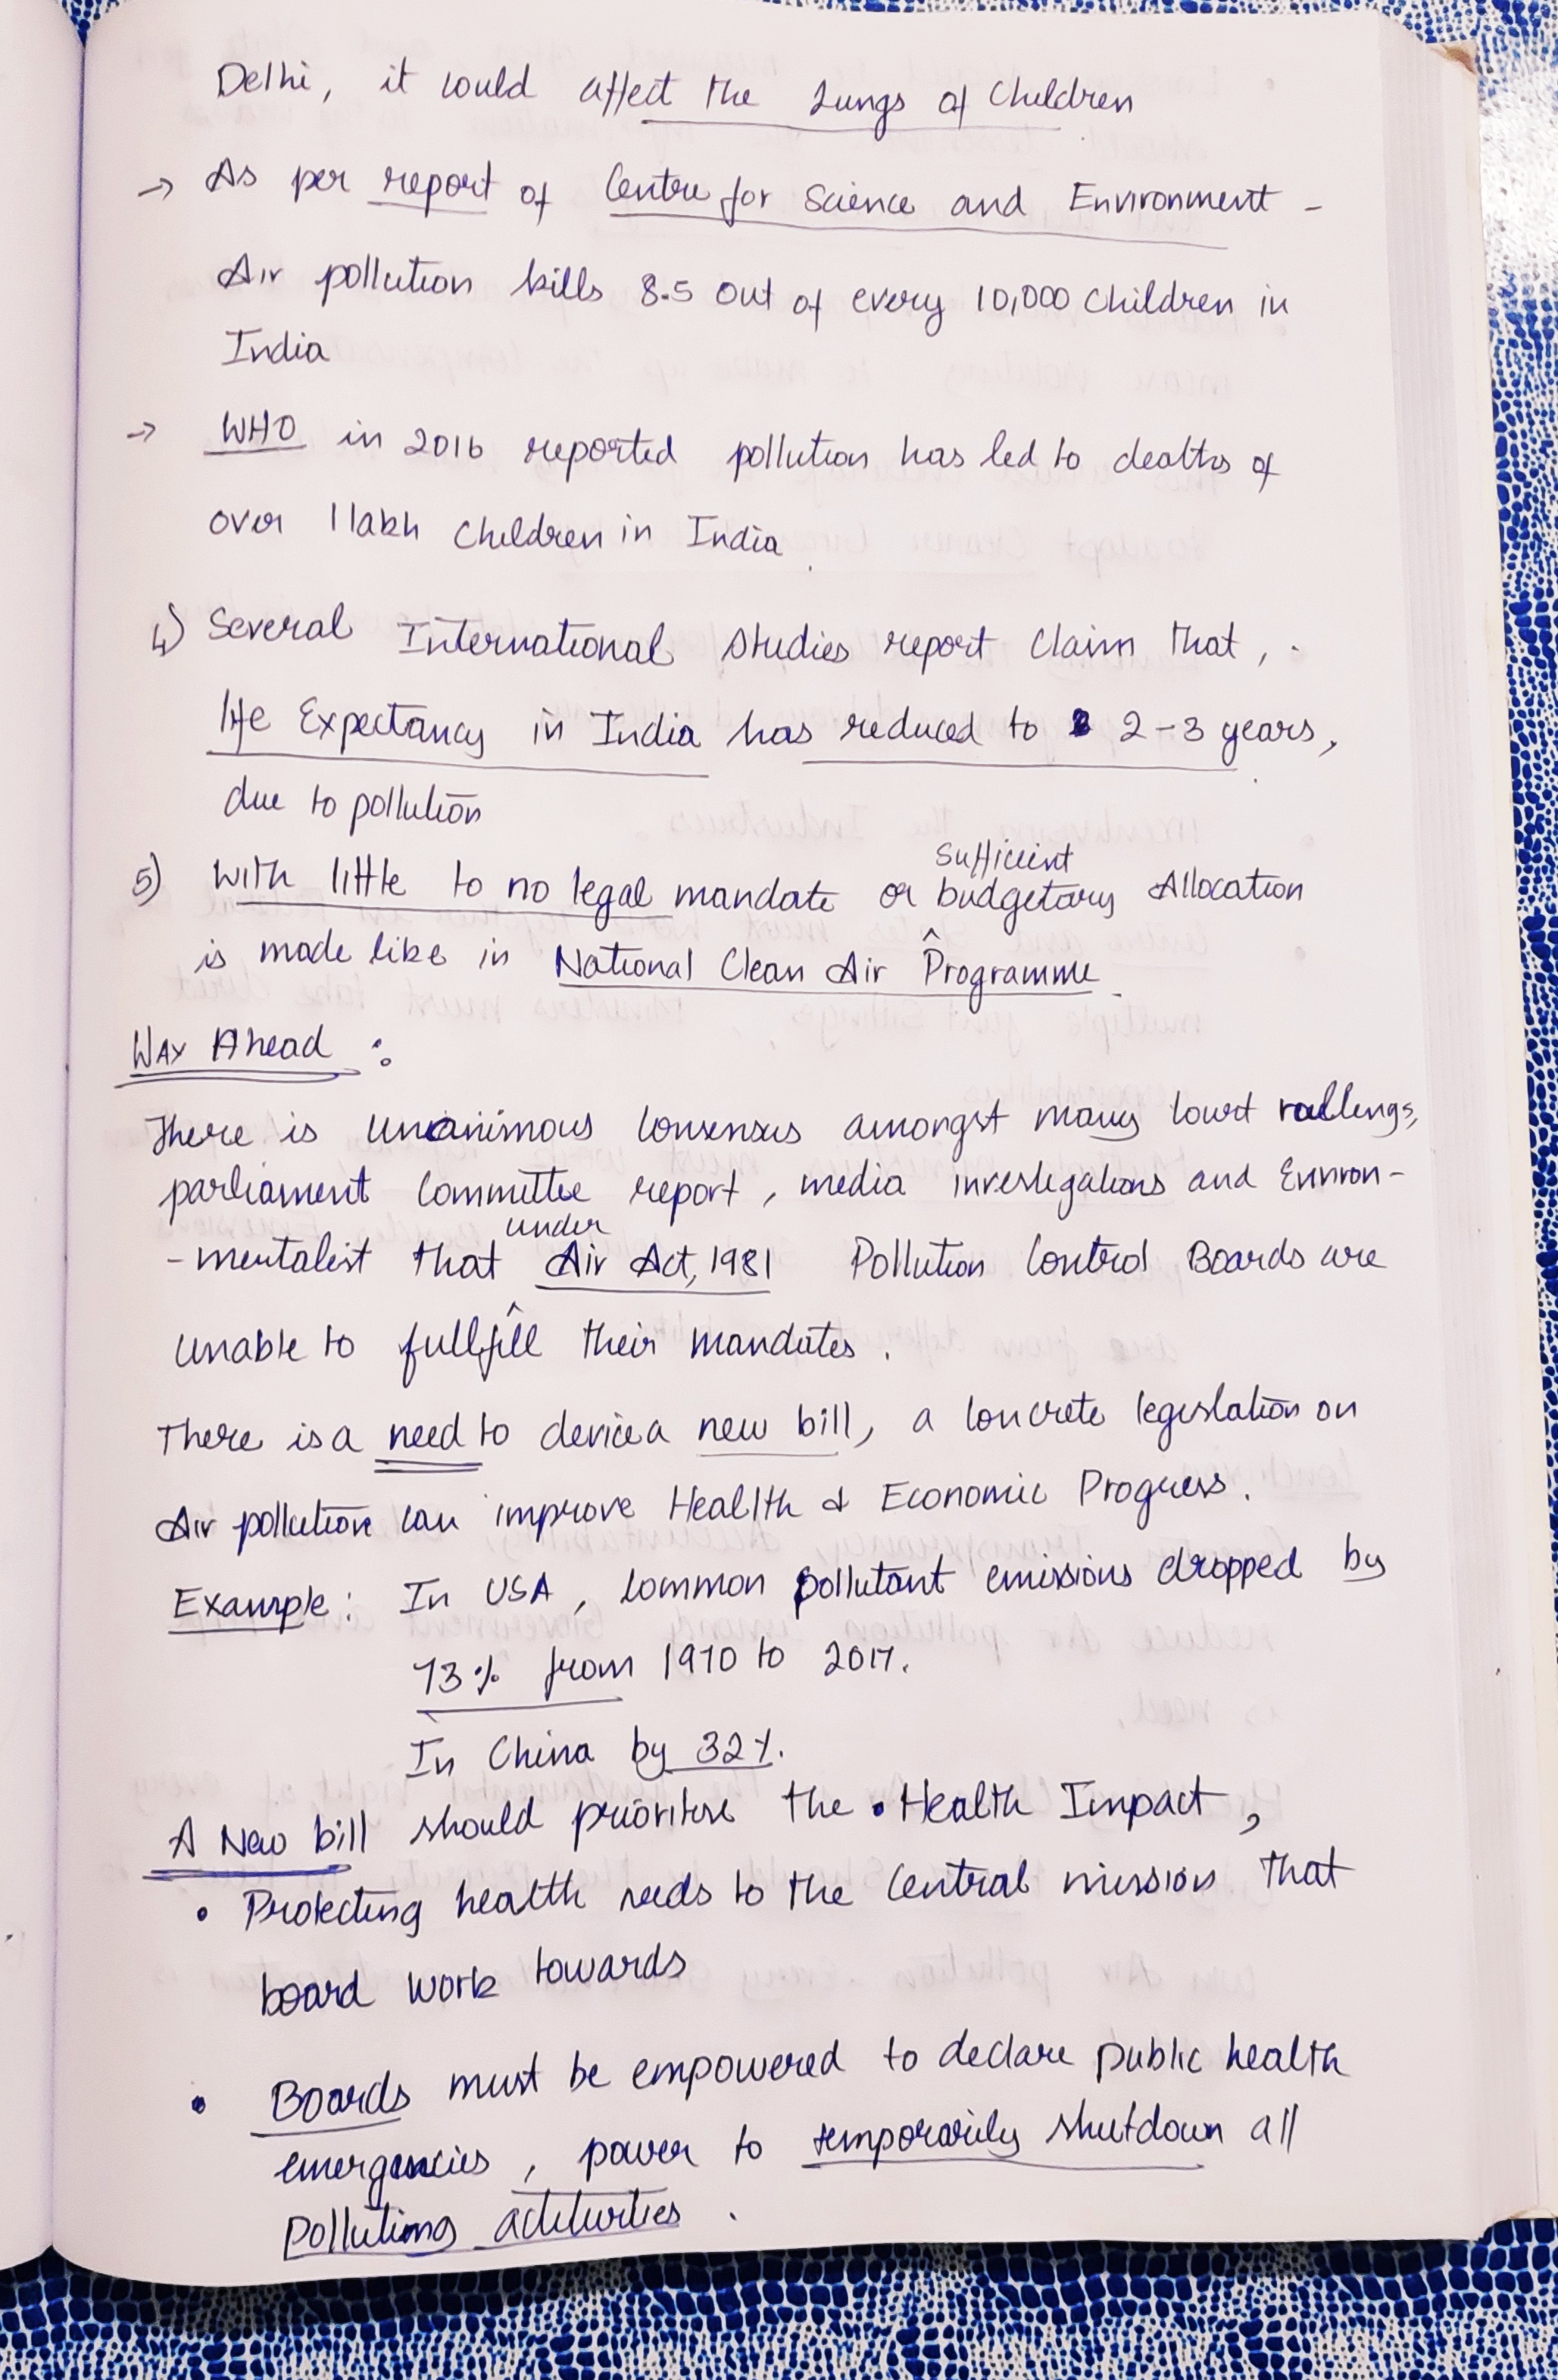 Delhi, it could affect the Lungs of Children
→ As per report of Centre for Science and Environment -
Air pollution kills 8.5 out of every 10,000 Children in
India
→ WHO in 2016 reported pollution has led to deaths of
over 1 lakh Children in India.
4) Several International studies report Claim that,
life Expectancy in India has reduced to 2-3 years,
due to pollution
5) With little to no legal mandate or sufficient budgetary Allocation
is made like in National Clean Air Programme.
Way Ahead :
There is unanimous Consensus amongst many Court rullings,
parliament Committee report, media investigations and Environ-
-mentalist that under Air Act, 1981 Pollution Control Boards are
unable to fullfill their mandates.
There is a need to device a new bill, a Concrete legislation on
Air pollution can improve Health & Economic Progress.
Example: In USA, Common pollutant emissions dropped by
73% from 1970 to 2017.
In China by 32%.
A New bill should prioritise the • Health Impact,
• Protecting health needs to the Central mission that
board work towards
• Boards must be empowered to declare public health
emergencies, power to temporarily shutdown all
Polluting actitivties.